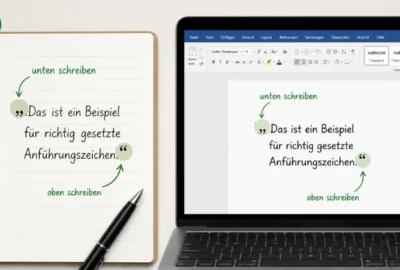 unten schreiben
„Das ist ein Beispiel
für richtig gesetzte
Anführungszeichen.“
oben schreiben
Start Einfügen Entwurf Layout
unten schreiben
„Das ist ein Beispiel
für richtig gesetzte
Anführungszeichen.“
oben schreiben